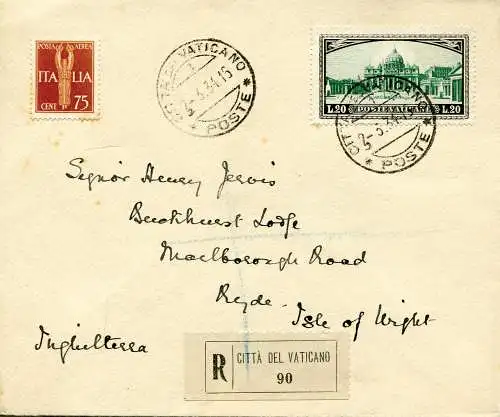 POSTA AEREA
ITALIA
CENT 75
CITTÀ DEL VATICANO
POSTE
L.20 POSTE VATICANE L.20
CITTÀ DEL VATICANO
POSTE
Signor Henry Jervis
Buckhurst Lodge
Marlborough Road
Ryde.
Isle of Wight
Inghilterra
R CITTÀ DEL VATICANO
90